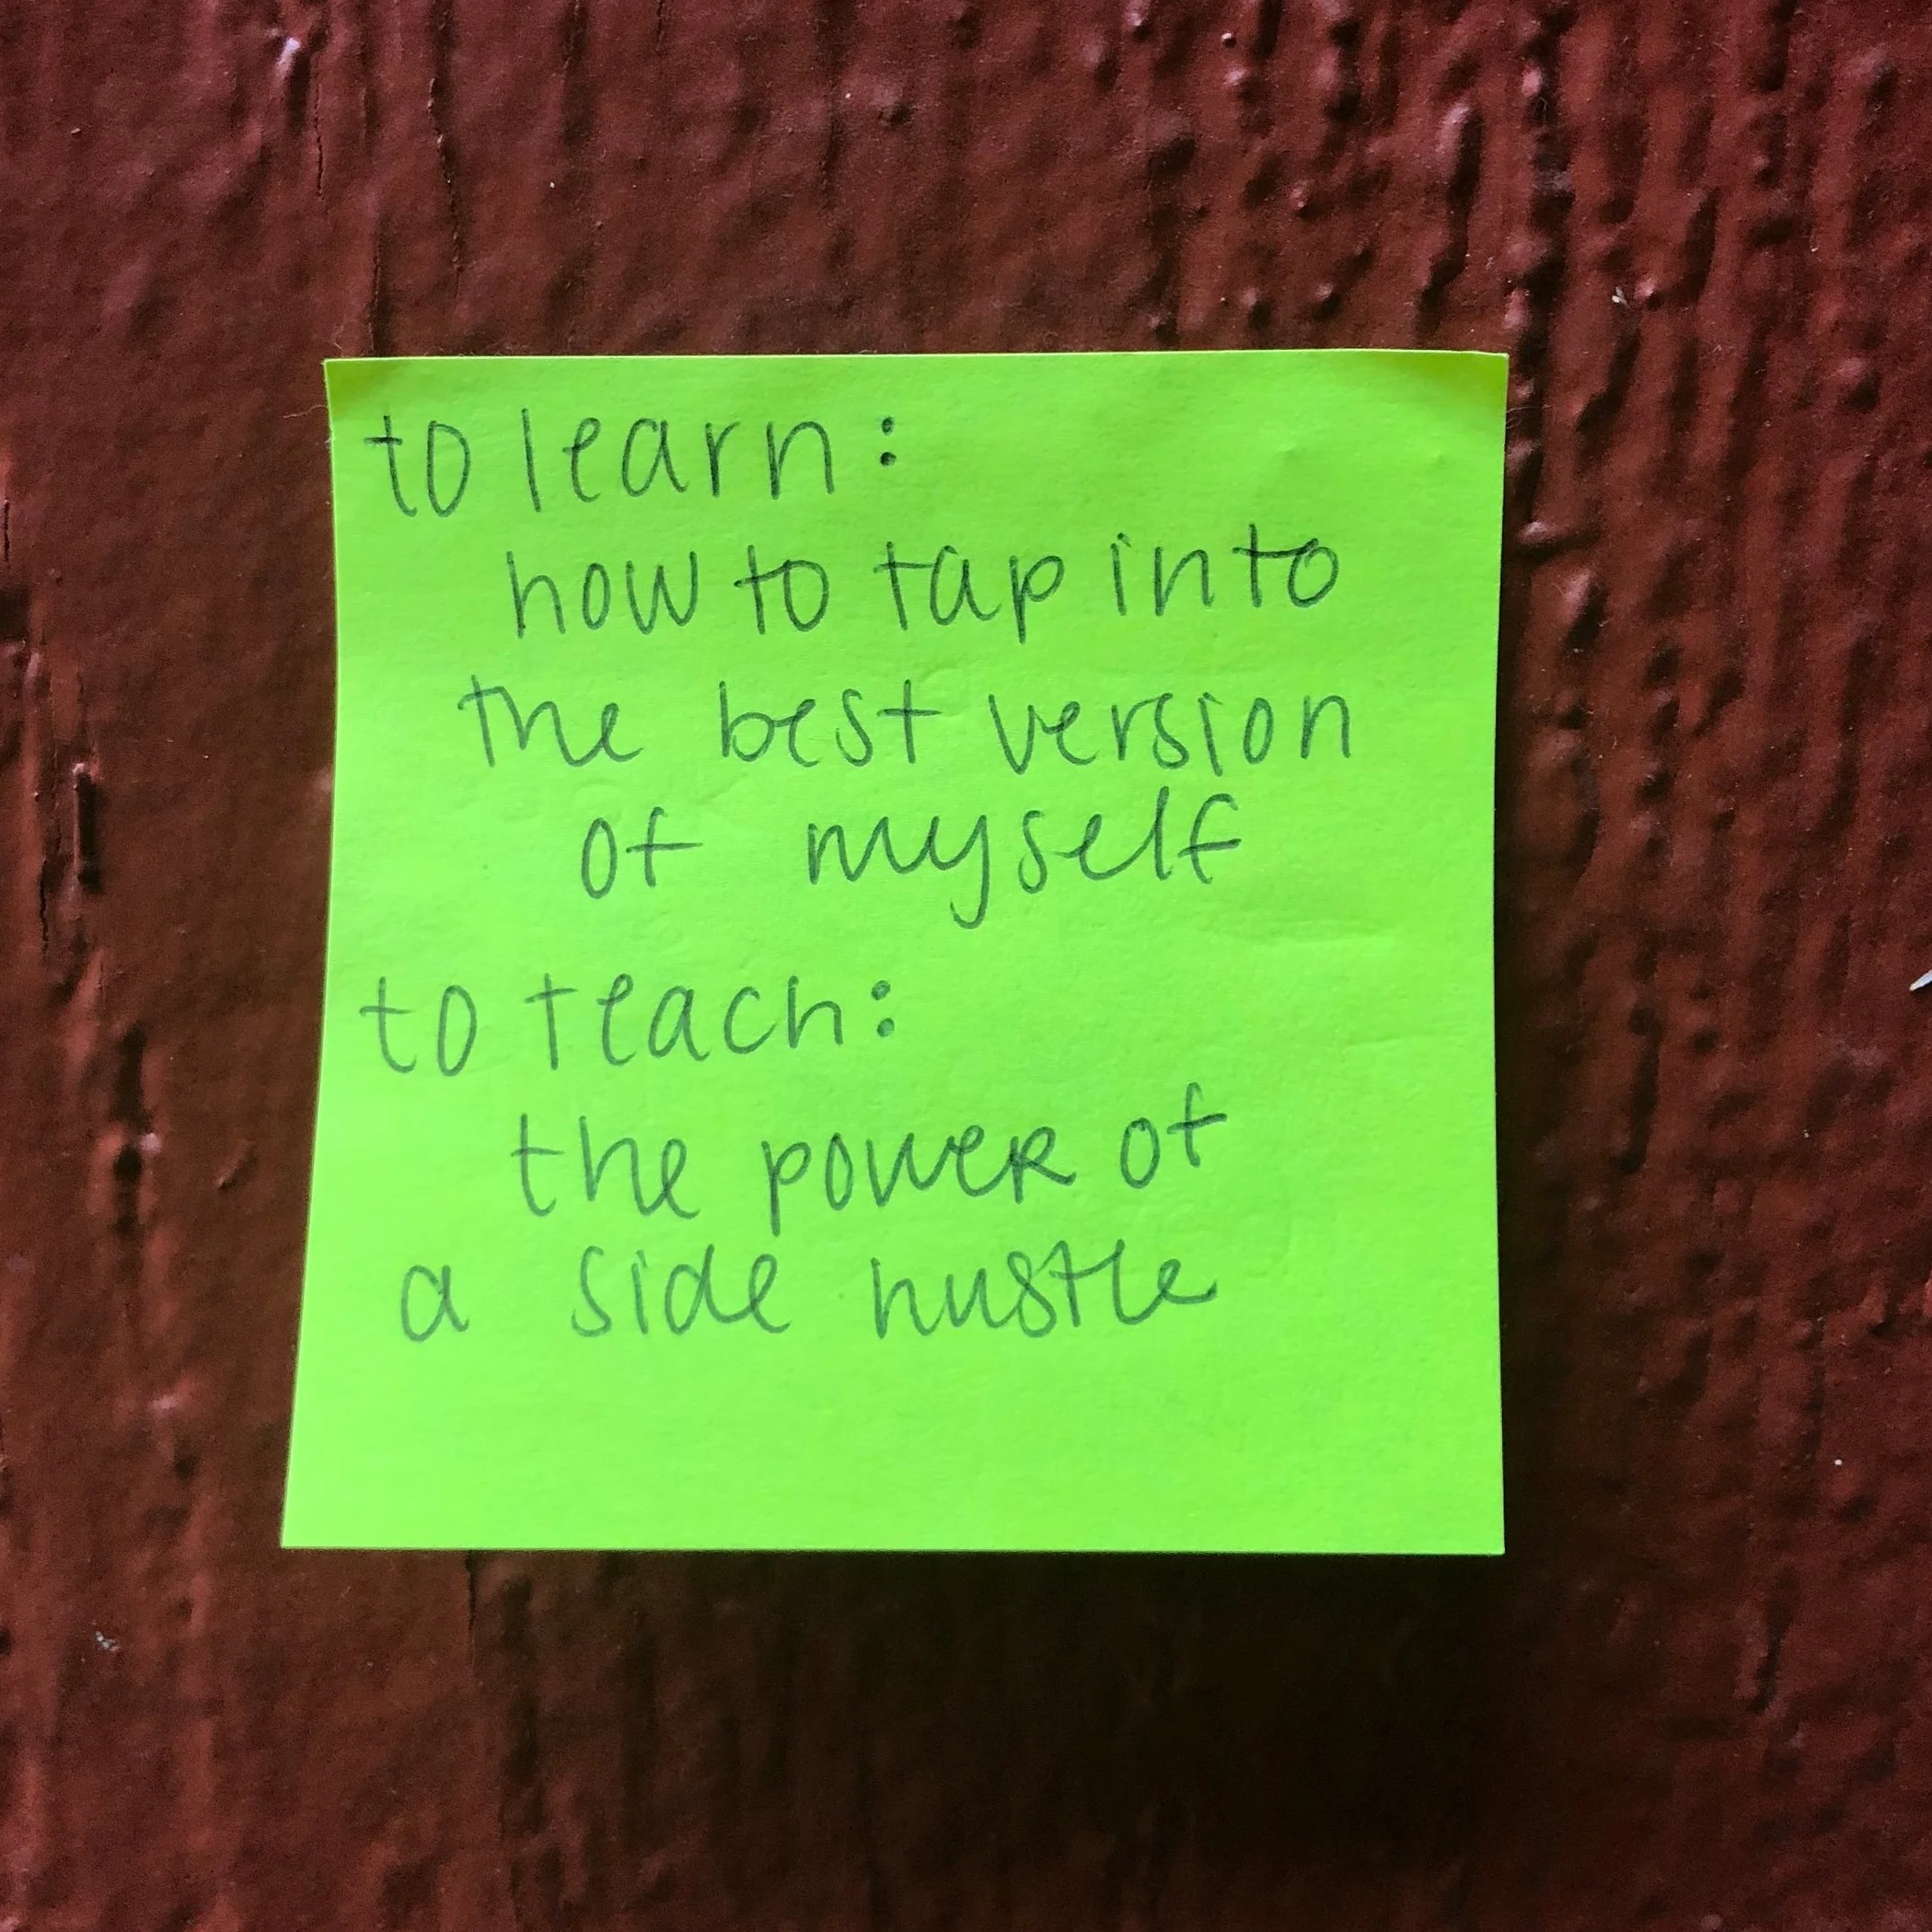 to learn:
how to tap into
the best version
of myself
to teach:
the power of
a side hustle